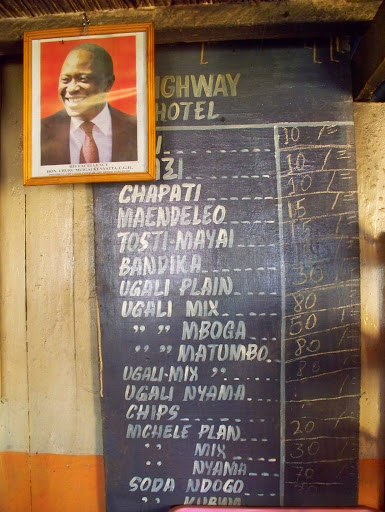 HIS EXCELLENCY
HON. UHURU MUIGAI KENYATTA C.G.H.
IGHWAY
HOTEL
10/=
ZI 10/=
CHAPATI 10/=
MAENDELEO 15/=
TOSTI-MAYAI 15/=
BANDIKA
UGALI PLAIN 30
UGALI MIX 80
" " MBOGA 50
" " MATUMBO 80
UGALI-MIX " 80
UGALI NYAMA
CHIPS
MCHELE PLAN 20
" MIX 30
" NYAMA 70
SODA NDOGO
" " KUBWA